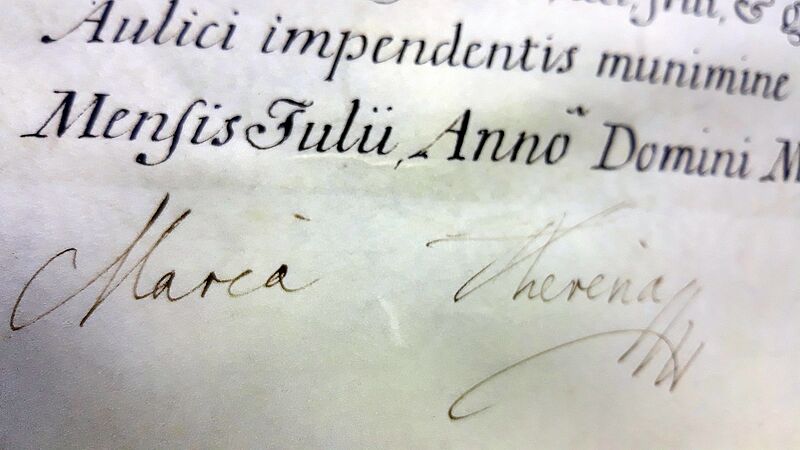 & 
Aulici impendentis munimine
Menſis Julii, Anno Domini M
Maria Theresia